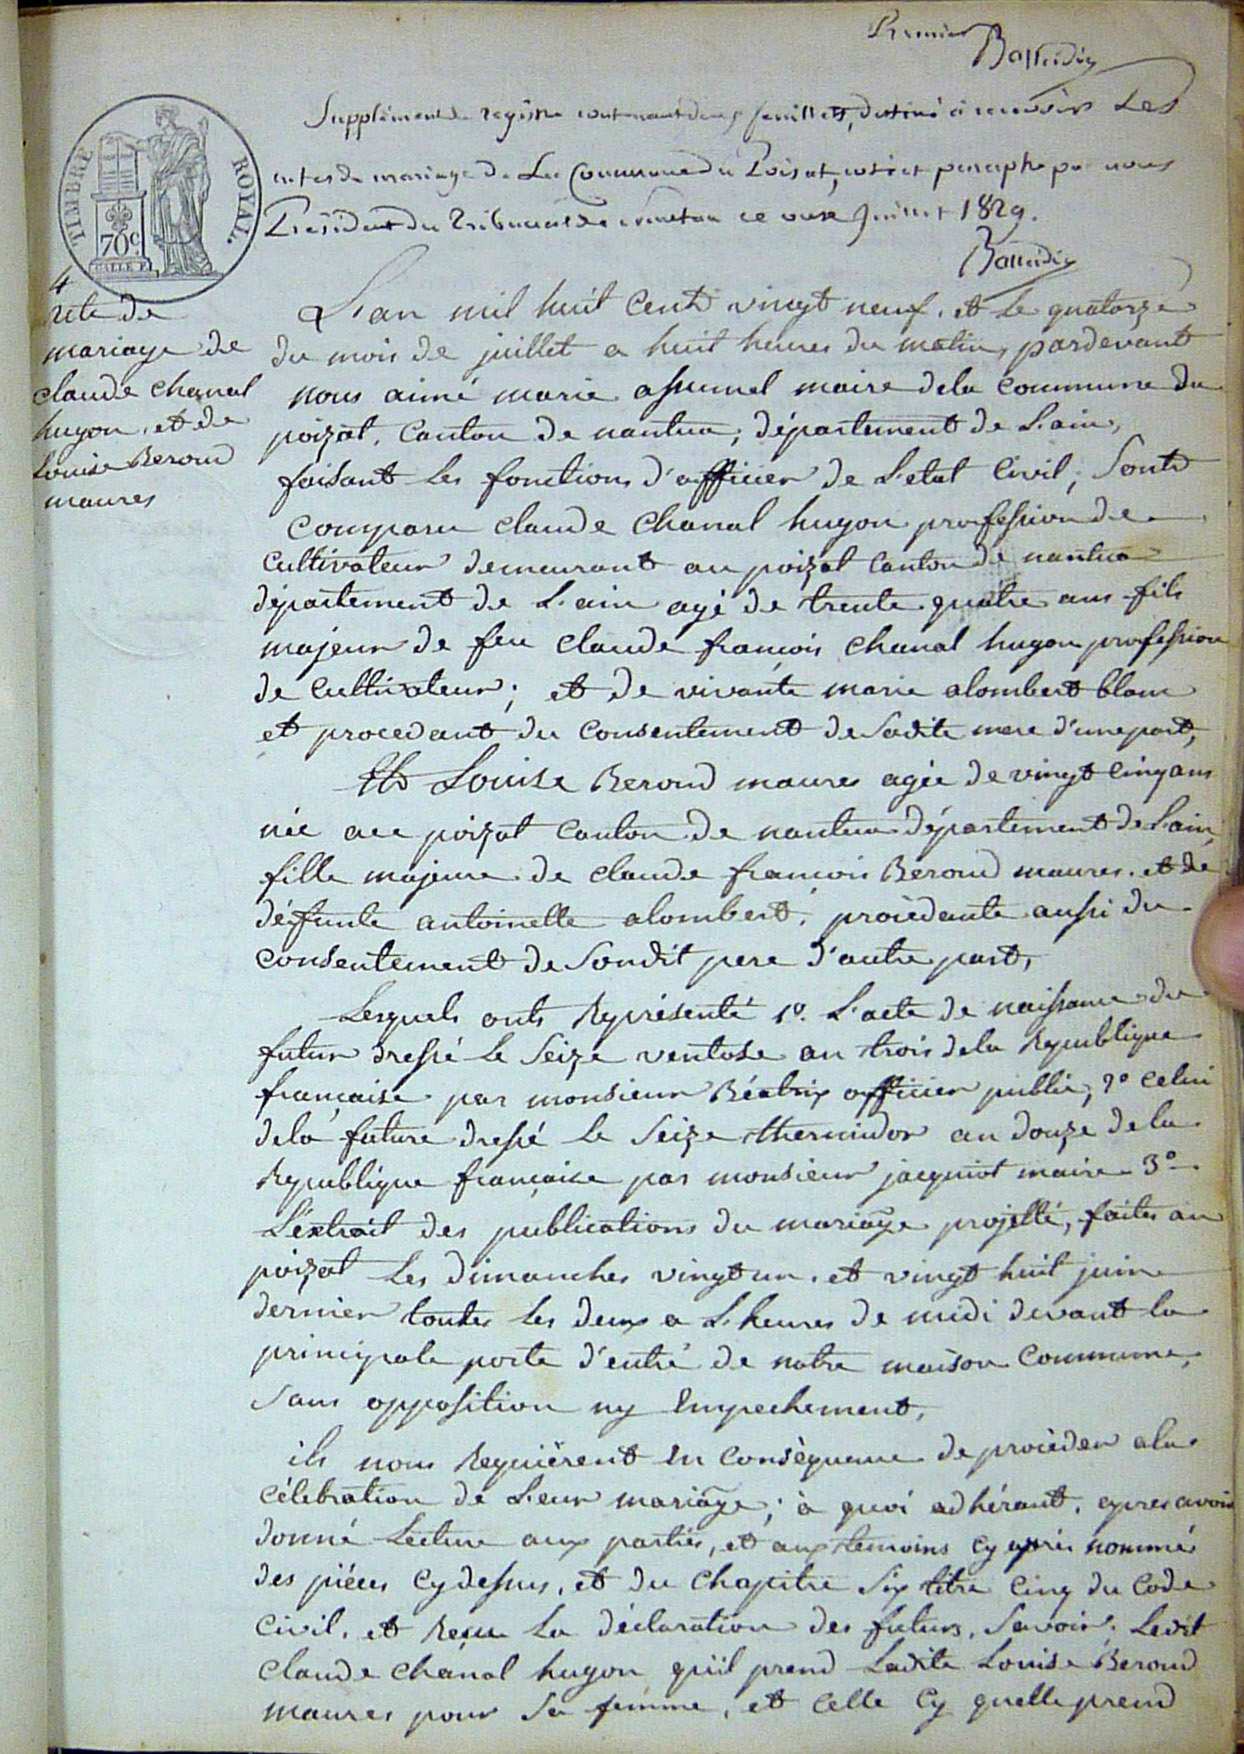 Premier
Supplément de registre contenant deux feuillets, destiné à recevoir Les
actes de mariage de La Commune du Poisat, coté et paraphé par nous
Président du Tribunal de Nantua ce onze Juillet 1829.
TIMBRE ROYAL.
70c.
4
acte de
mariage de
claude chanal
hugon, et de
Louise Beroud
maures
L'an mil huit cent vingt neuf, et Le quatorze
du mois de juillet a huit heures du matin, pardevant
nous aimé marie assumel maire dela commune du
poizat, canton de nantua, département de L'ain,
faisant Les fonctions d'officier de L'etat Civil, Sont
comparu claude chanal hugon profession de
cultivateur demeurant au poizat canton de nantua
département de L'ain agé de trente quatre ans fils
majeur de feu claude françois chanal hugon profession
de cultivateur; et de vivante marie alombert blanc
et procedant du consentement de Sadite mere d'une part,
Et Louise Beroud maures agée de vingt cinq ans
née au poizat canton de nantua département de L'ain
fille majeure de claude françois Beroud maures, et de
défunte antoinette alombert, procèdante aussi du
consentement de Sondit pere d'autre part,
Lesquels onts Représenté 1º. L'acte de naissance du
futur dressé Le Seize ventose an trois dela Republique
française par monsieur Béatrix officier public, 2º celui
dela future dressé Le Seize thermidor an douze dela
Republique française par monsieur jacquiot maire 3º
L'éxtrait des publications du mariage projetté, faites au
poizat Les dimanches vingt un, et vingt huit juin
dernier toutes Les deux a L'heures de midi devant la
principale porte d'entré de notre maison Commune,
Sans opposition ny Empechement,
ils nous Requièrent En consèquence de procèder ala
célebration de Leur mariage; à quoi adhérant, apres avoir
donné Lecture aux parties, et aux temoins cy aprés nommés
des piéces cy dessus, et du chapitre Six titre cinq du Code
civil, et Reçu La déclaration des futurs, Savoir, Ledit
claude chanal hugon qu'il prend Ladite Louise Beroud
maures pour Sa femme, et celle cy quelle prend